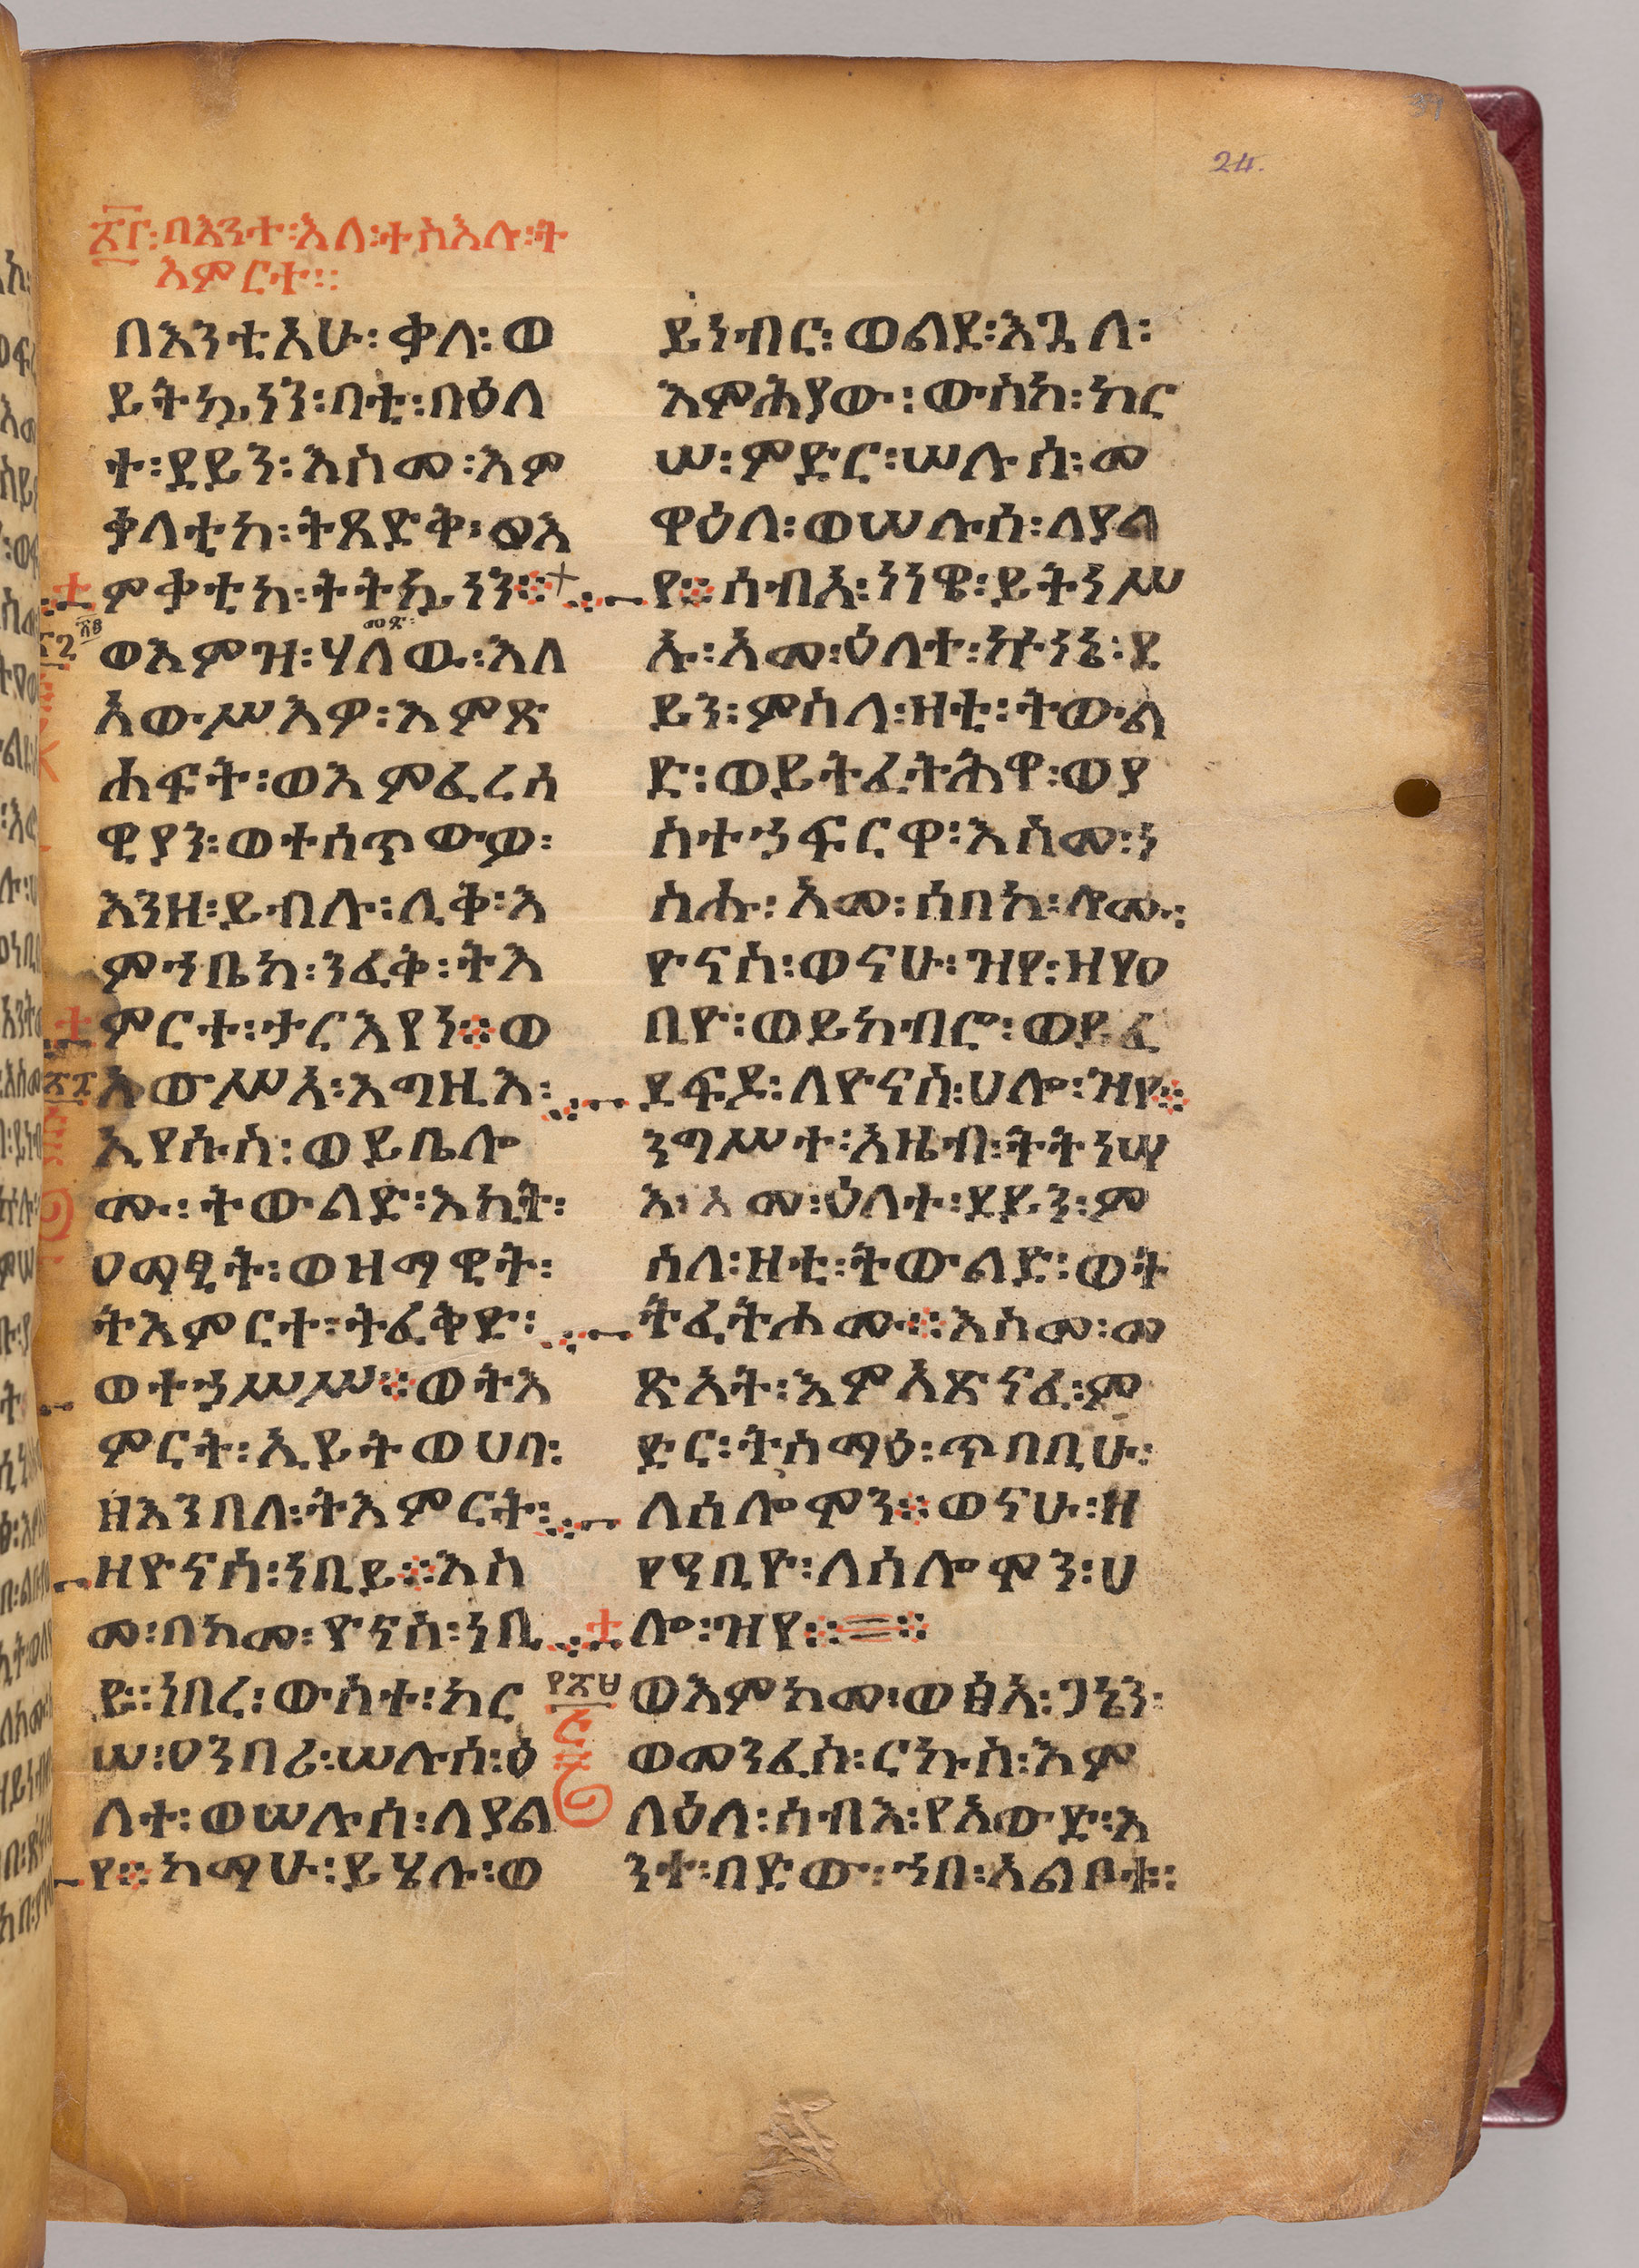 24.
፳፫፡በእንተ፡እለ፡ተስእሉ፡ት
እምርተ፡፡
በእንቲአሁ፡ ቃለ፡ ወ
ይትኴነን፡በቲ፡በዕለ
ተ፡ደይን፡እስመ፡እም
ቃላቲከ፡ትጸድቅ፡ወእ
ምቃቲከ፡ትትኴነን፨
መጽ፡
ወእምዝ፡ሃለው፡እለ
አውሥእዎ፡እምጽ
ሐፍት፡ወእምፈሪሳ
ዊያን፡ወተሰጥውዎ፡
እንዘ፡ይብሉ፡ሊቅ፡እ
ምኀቤከ፡ንፈቅ፡ትእ
ምርተ፡ታርእየነ፨ወ
አውሥአ፡እግዚእ፡
ኢየሱስ፡ወይቤሎ
ሙ፡ትውልድ፡እኪት፡
ዐማፂት፡ወዘማዊት፡
ትእምርተ፡ትፈቅድ፡
ወተኃሥሥ፨ወትእ
ምርት፡ኢይትወሀባ፡
ዘእንበለ፡ትእምርት፡
ዘዮናስ፡ነቢይ፨እስ
መ፡በከመ፡ዮናስ፡ነቢ
ይ፡፡ነበረ፡ውስተ፡ከር
ሠ፡ዐንበሪ፡ሠሉሰ፡ዕ
ለተ፡ወሠሉሰ፡ለያል
የ፨ከማሁ፡ይሄሉ፡ወ
ይነብር፡ወልደ፡እጓለ፡
እምሕያው፡ውስከ፡ከር
ሠ፡ምድር፡ሠሉሰ፡መ
ዋዕለ፡ወሠሉሰ፡ለያል
የ፨ሰብአ፡ነነዌ፡ይትነሥ
ኡ፡አመ፡ዕለተ፡ኵነኔ፡ደ
ይን፡ምስለ፡ዛቲ፡ትውል
ድ፡ወይትፈትሕዋ፡ወያ
ስተኃፍርዋ፡እስመ፡ነ
ስሑ፡አመ፡ሰበከ፡ሎሙ፡
ዮናስ፡ወናሁ፡ዝየ፡ዘየዐ
ቢዮ፡ወይከብሮ፡ወይፈ
ደፍዶ፡ለዮናስ፡ሀሎ፡ዝየ፨
ንግሥተ፡አዜብ፡ትትነሣ
እ፡አመ፡ዕለተ፡ደይን፡ም
ስለ፡ዛቲ፡ትውልድ፡ወት
ትፈትሐሙ፨እስመ፡መ
ጽአት፡እምአጽናፈ፡ም
ድር፡ትስማዕ፡ጥበቢሁ፡
ለሰሎሞን፨ወናሁ፡ዘ
የዓቢዮ፡ለሰሎሞን፡ሀ
ሎ፡ዝየ፨=፨
ወእምከመ፡ወፅአ፡ጋኔን፡
ወመንፈስ፡ርኩስ፡እም
ለዕለ፡ሰብእ፡የአውድ፡እ
ንተ፡በድው፡ኀበ፡አልቦቱ፡